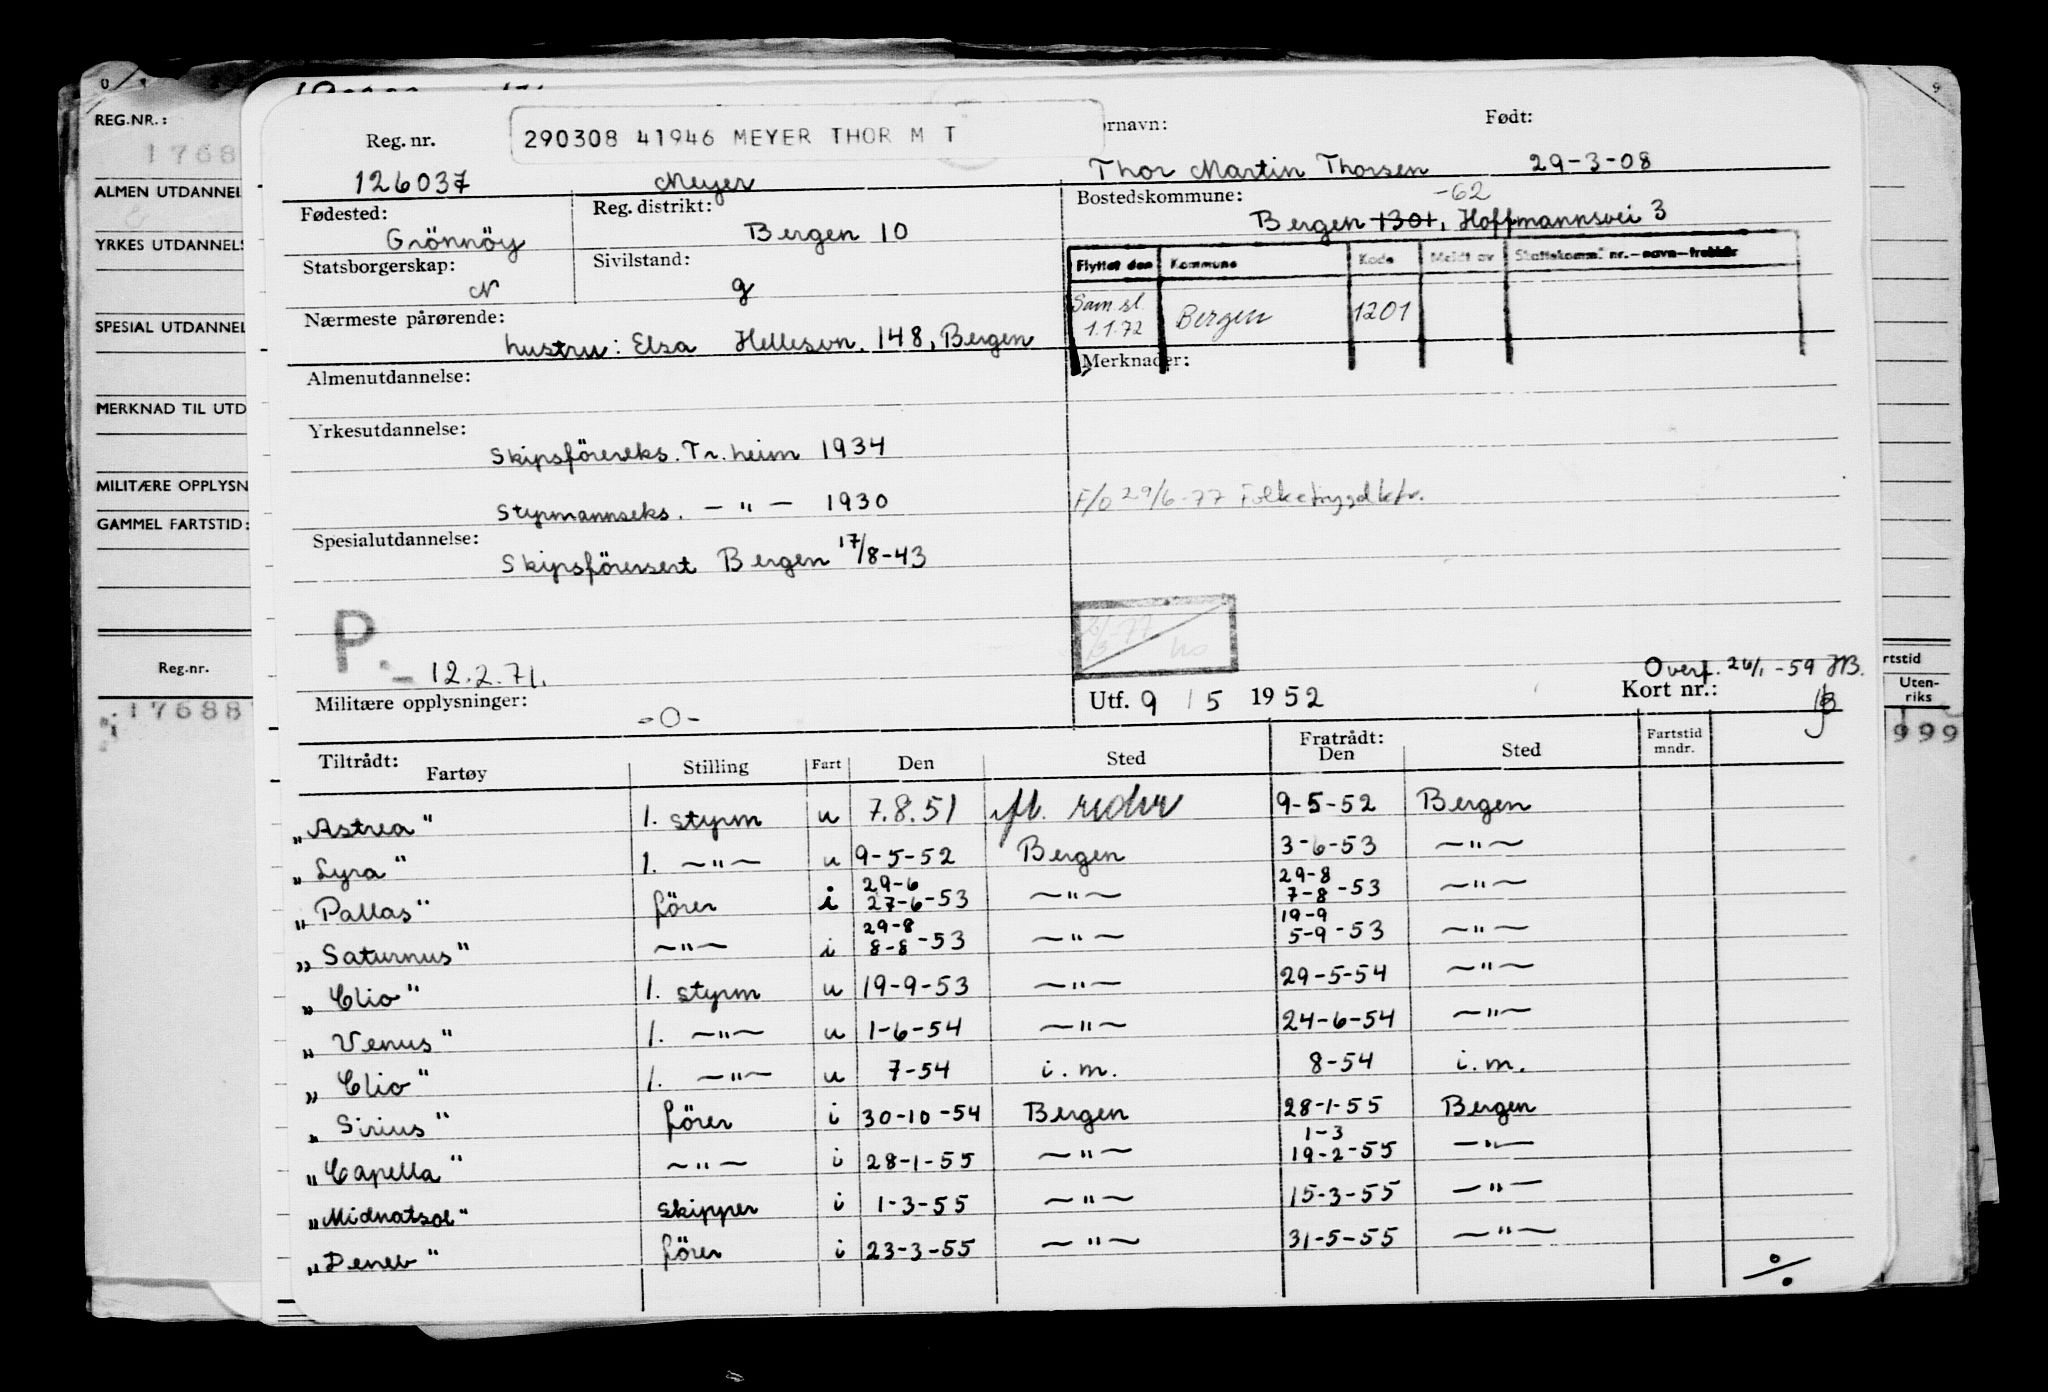 REG.NR.:
1768
ALMEN UTDANNEL
YRKES UTDANNELS
SPESIAL UTDANNEL
MERKNAD TIL UTD
MILITÆRE OPPLYSN
GAMMEL FARTSTID:
Reg.nr.
17688
rtstid
Uten-
riks
999
Reg. nr. 290308 41946 MEYER THOR M T ornavn: Født:
126037 Meyer Thor Martin Thorsen 29-3-08
Fødested: Reg. distrikt: Bostedskommune: -62
Grönnöy Bergen 10 Bergen 1301, Hoffmannsvei 3
Statsborgerskap: Sivilstand: Flyttet den Kommune Kode Meldt av Skattekomm. nr.-navn-trekkår
N g
Sam.sl. 1.1.72 Bergen 1201
Nærmeste pårørende:
hustru: Elsa Hellesvn. 148, Bergen
Almenutdannelse: Merknader:
Yrkesutdannelse:
Skipsförereks. Tr.heim 1934
Styrmannseks. - " - 1930
F/o 29/6-77 Folketrygdktr.
Spesialutdannelse:
Skipsförersert Bergen 17/8-43
P.
- 12.2.71.
Overf. 26/1-59 HB.
Militære opplysninger: -0- Utf. 9 / 5 1952 Kort nr.:
Tiltrådt: Fartøy Stilling Fart Den Sted Fratrådt: Den Sted Fartstid mndr.
"Astrea" 1. styrm u 7.8.51 fl. reder 9-5-52 Bergen
"Lyra" 1. -"- u 9-5-52 Bergen 3-6-53 -"-
29-6 29-8
"Pallas" förer i 27-6-53 -"- 7-8-53 -"-
29-8 19-9
"Saturnus" -"- i 8-8-53 -"- 5-9-53 -"-
"Clio" 1. styrm u 19-9-53 -"- 29-5-54 -"-
"Venus" 1. -"- u 1-6-54 -"- 24-6-54 -"-
"Clio" 1. -"- u 7-54 i.m. 8-54 i.m.
"Sirius" förer i 30-10-54 Bergen 28-1-55 Bergen
1-3
"Capella" -"- i 28-1-55 -"- 19-2-55 -"-
"Midnatsol" skipper i 1-3-55 -"- 15-3-55 -"-
"Deneb" förer i 23-3-55 -"- 31-5-55 -"-
%